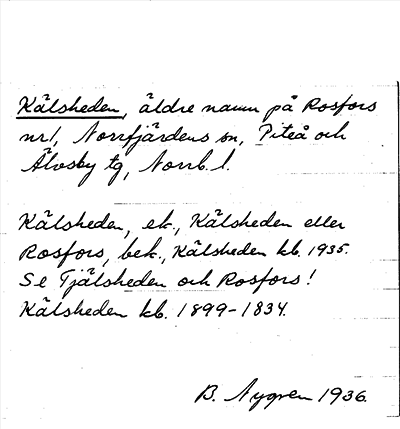 Kälsheden, äldre namn på Rosfors
nr 1, Norrfjärdens sn, Piteå och
Älvsby tg, Norrb. l.
Kälsheden, ek., Kälsheden eller
Rosfors, bek., Kälsheden kb. 1935.
Se Tjälsheden och Rosfors!
Kälsheden kb. 1899-1834.
B. Nygren 1936.